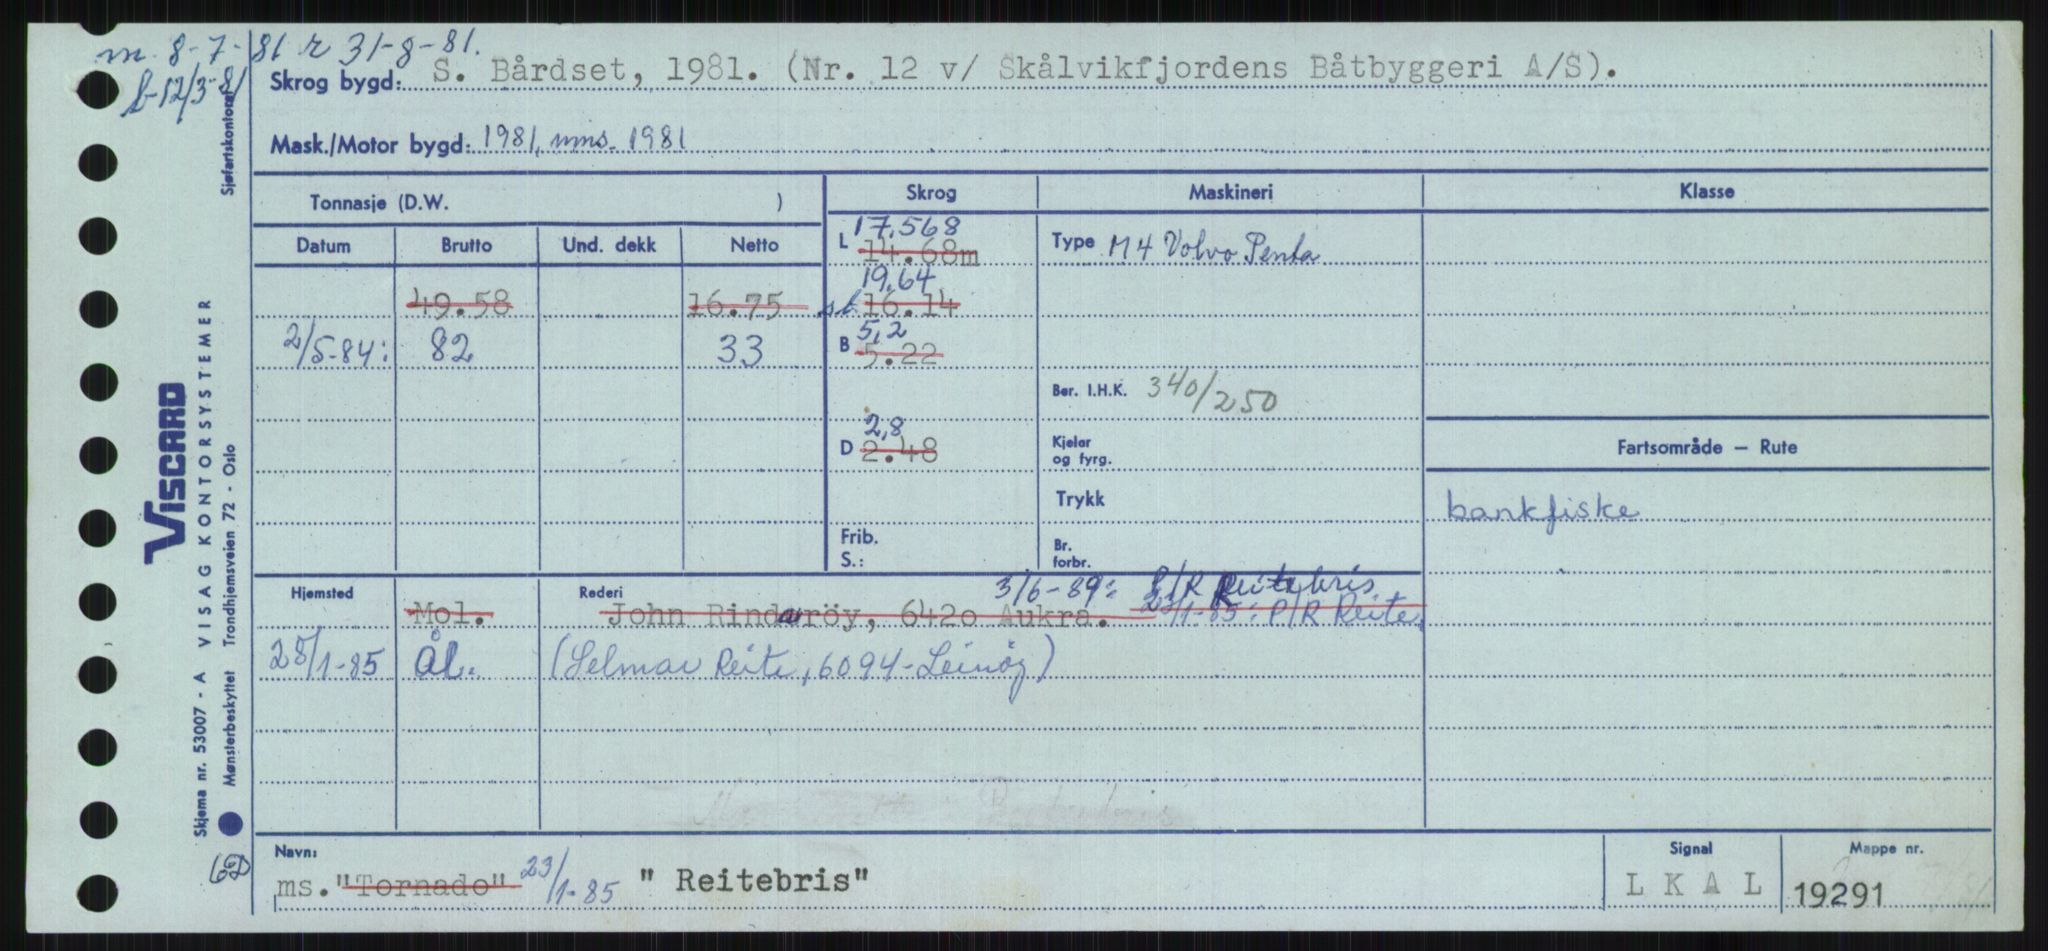 m. 8-7-81 r 31-8-81.
b-12/3-81
Skrog bygd: S. Bårdset, 1981. (Nr. 12 v/ Skålvikfjordens Båtbyggeri A/S).
Mask./Motor bygd: 1981, mms. 1981
Tonnasje (D.W. ) Skrog Maskineri Klasse
Datum Brutto Und. dekk Netto
L 17,568
14.68m
Type M4 Volvo Penta
19,64
49.58 16.75 st 16.14
5,2
2/5-84: 82 33 B 5.22
Ber. I.H.K. 340/250
2,8
D 2.48
Kjeler og fyrg.
Fartsområde — Rute
Trykk
bankfiske
Frib.
S.:
Br. forbr.
Hjemsted Rederi 3/6-89: P/R Reitebris
Mol. John Rindaröy, 6420 Aukra. 23/1-85: P/R Reite,
25/1-85 Ål. (Selmar Reite, 6094-Leinöy)
Navn: Signal Mappe nr.
ms. "Tornado" 23/1-85 " Reitebris" L K A L 19291
Sjøfartskontoret
Viscard
VISAG KONTORSYSTEMER
Skjema nr. 53007 - A
Mønsterbeskyttet Trondhjemsveien 72 - Oslo